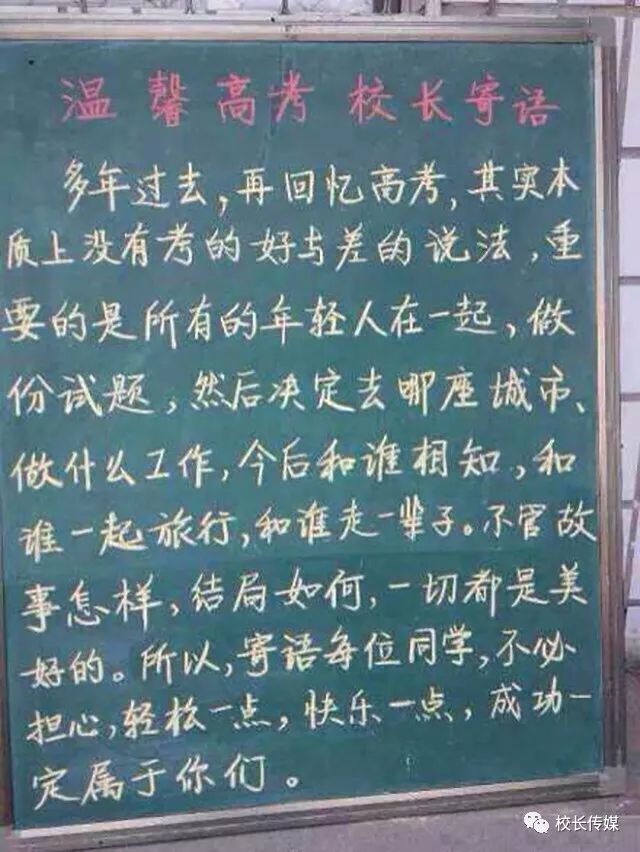 温馨高考 校长寄语
多年过去,再回忆高考,其实本
质上没有考的好与差的说法,重
要的是所有的年轻人在一起,做
份试题,然后决定去哪座城市、
做什么工作,今后和谁相知,和
谁一起旅行,和谁走一辈子。不管故
事怎样,结局如何,一切都是美
好的。所以,寄语每位同学,不必
担心,轻松一点,快乐一点,成功一
定属于你们。
校长传媒